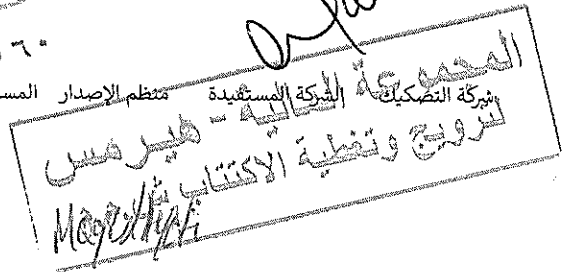 ٦٠
شركة التصكيك الشركة المستفيدة منظم الإصدار المس
المجموعة المالية - هيرمس
لترويج وتغطية الاكتتاب